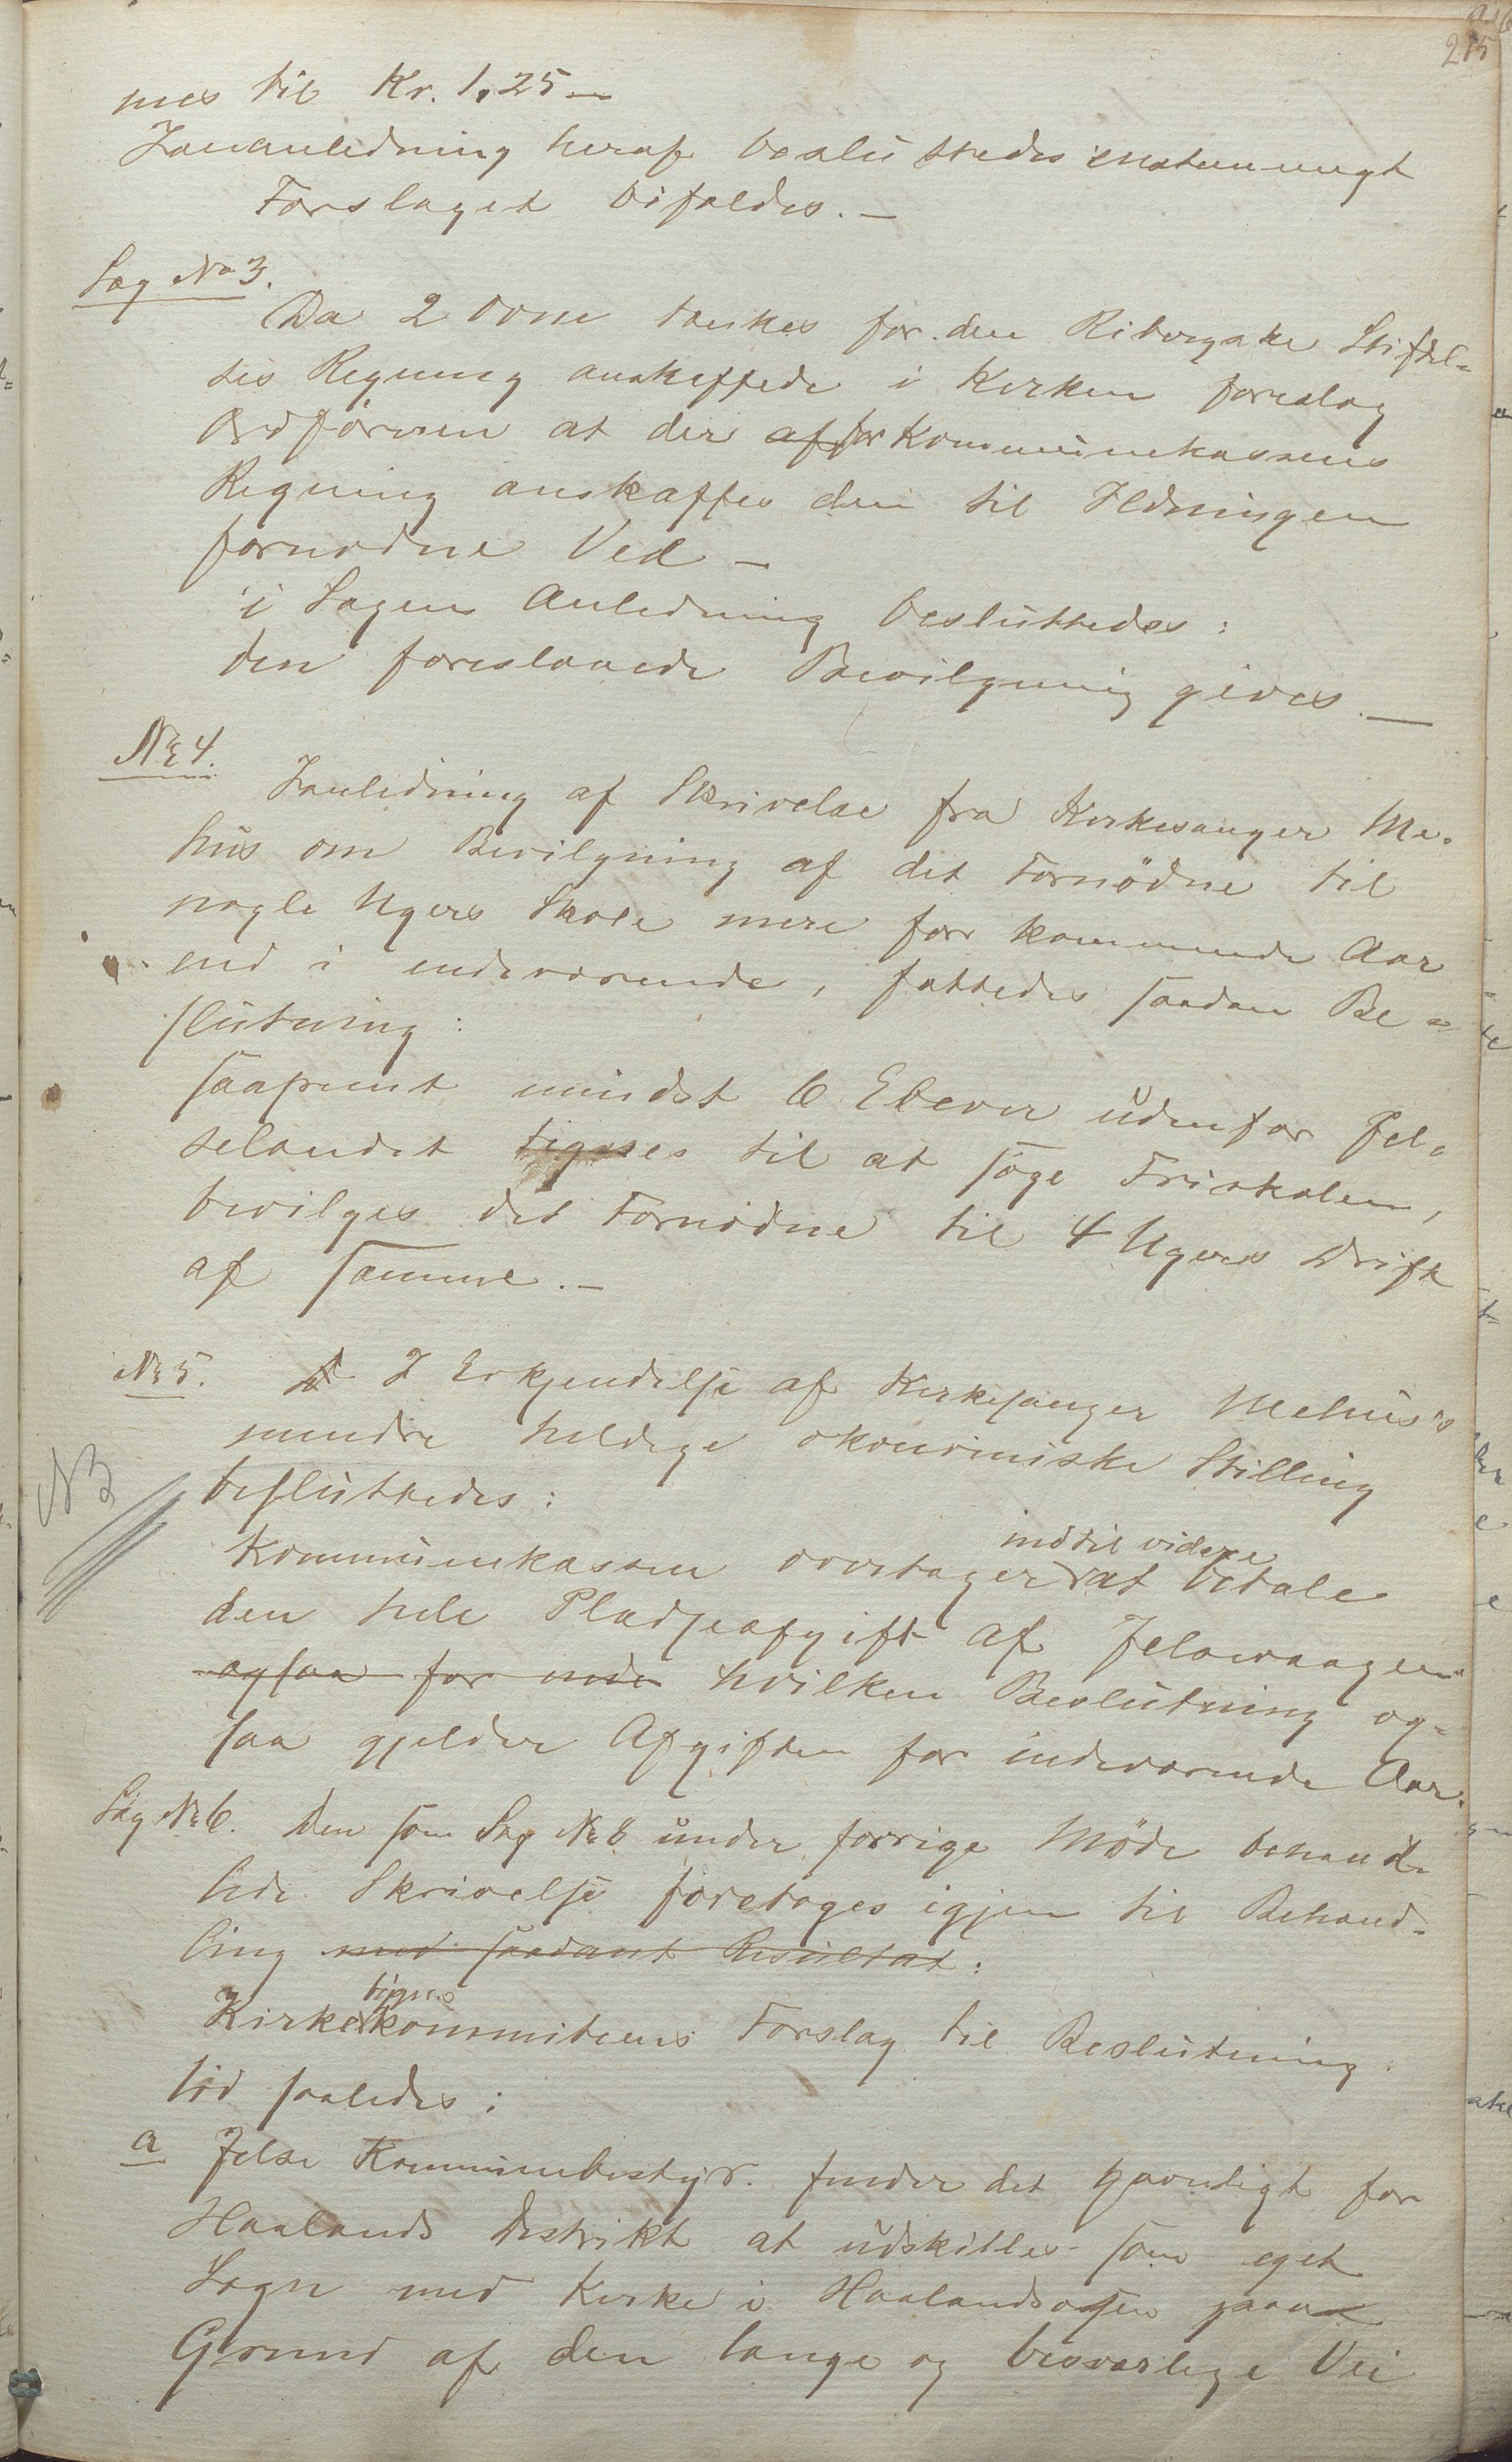 215
mes til Kr. 1,25 —
I anledning heraf besluttedes enstemmigt
Forslaget bifaldes. —
Sag No 3.
Da 2 Ovne tænkes for den Ribergske Stiftel-
ses Regning anskaffede i Kirken foreslog
Ordføreren at der af for Kommunekassens
Regning anskaffes den til Ildningen
fornødne Ved —
i Sagens Anledning besluttedes:
den foreslaaede Bevilgning gives. —
No 4.
I anledning af Skrivelse fra Kirkesanger Me-
hus om Bevilgning af det Fornødne til
nogle Ugers Skole mere for kommende Aar
end i indeværende, fattedes saadan Be-
slutning:
saafremt mindst 6 Elever udenfor Jel-
selandet tegnes til at søge Friskolen,
bevilges det Fornødne til 4 Ugers Drift
af samme. —
No 5. I Erkjendelse af Kirkesanger Mehus's
mindre heldige økonomiske Stilling
besluttedes:
NB
indtil videre
Kommunekassen overtager at betale
den hele Pladseafgift af Jelsevaagen
ogsaa for inde hvilken Beslutning og-
saa gjelder Afgiften for indeværende Aar.
Sag No 6. Den som Sag No 8 under forrige Møde behand-
lede Skrivelse foretoges igjen til Behand-
ling med saadant Resultat:
Kirkekommiteens Forslag til Beslutning
lød saaledes:
a Jelse Kommunebestyr. finder det gavnligt for
Haalands Distrikt at udskilles som eget
Sogn med Kirke i Haalandsosen paa
Grund af den lange og besværlige Vei